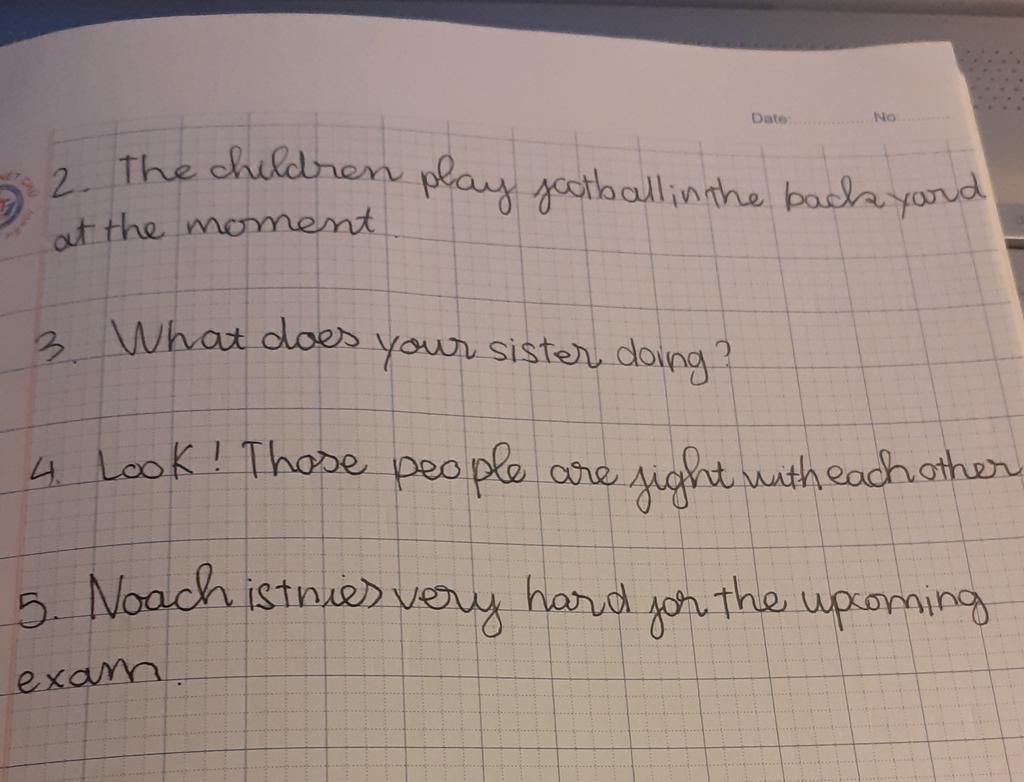 Date: No:
2. The children play football in the back yard
at the moment.
3. What does your sister doing?
4. Look! Those people are fight with each other
5. Noach is tries very hard for the upcoming
exam.